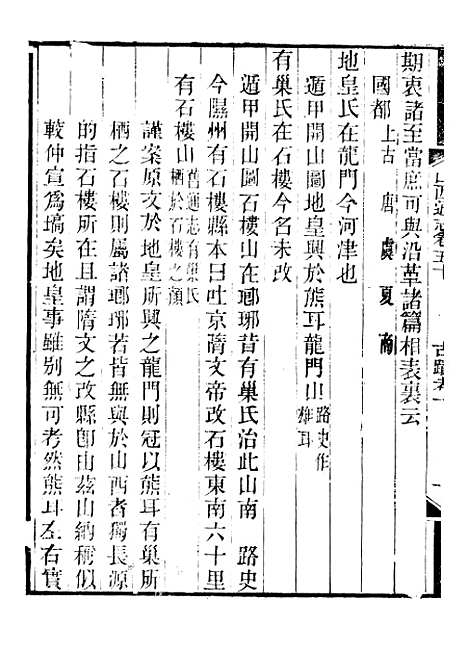 期衷諸至當庶可與沿革諸篇相表裏云
國都 上古 唐 虞 夏 商
地皇氏在龍門今河津也
遁甲開山圖地皇興於熊耳龍門山 路史作雄耳
有巢氏在石樓今名未改
遁甲開山圖石樓山在瑯琊昔有巢氏治此山南 路史
今隰州有石樓縣本曰吐京隋文帝改石樓東南六十里
有石樓山 舊通志有巢氏栖於石樓之顏
謹案原文於地皇所興之龍門則冠以熊耳有巢所
栖之石樓則屬諸瑯琊若皆無與於山西者獨長源
的指石樓所在且謂隋文之改縣卽由茲山納稱似
較仲宣爲塙矣地皇事雖别無可考然熊耳左右實
山西通志卷五十 古蹟考一